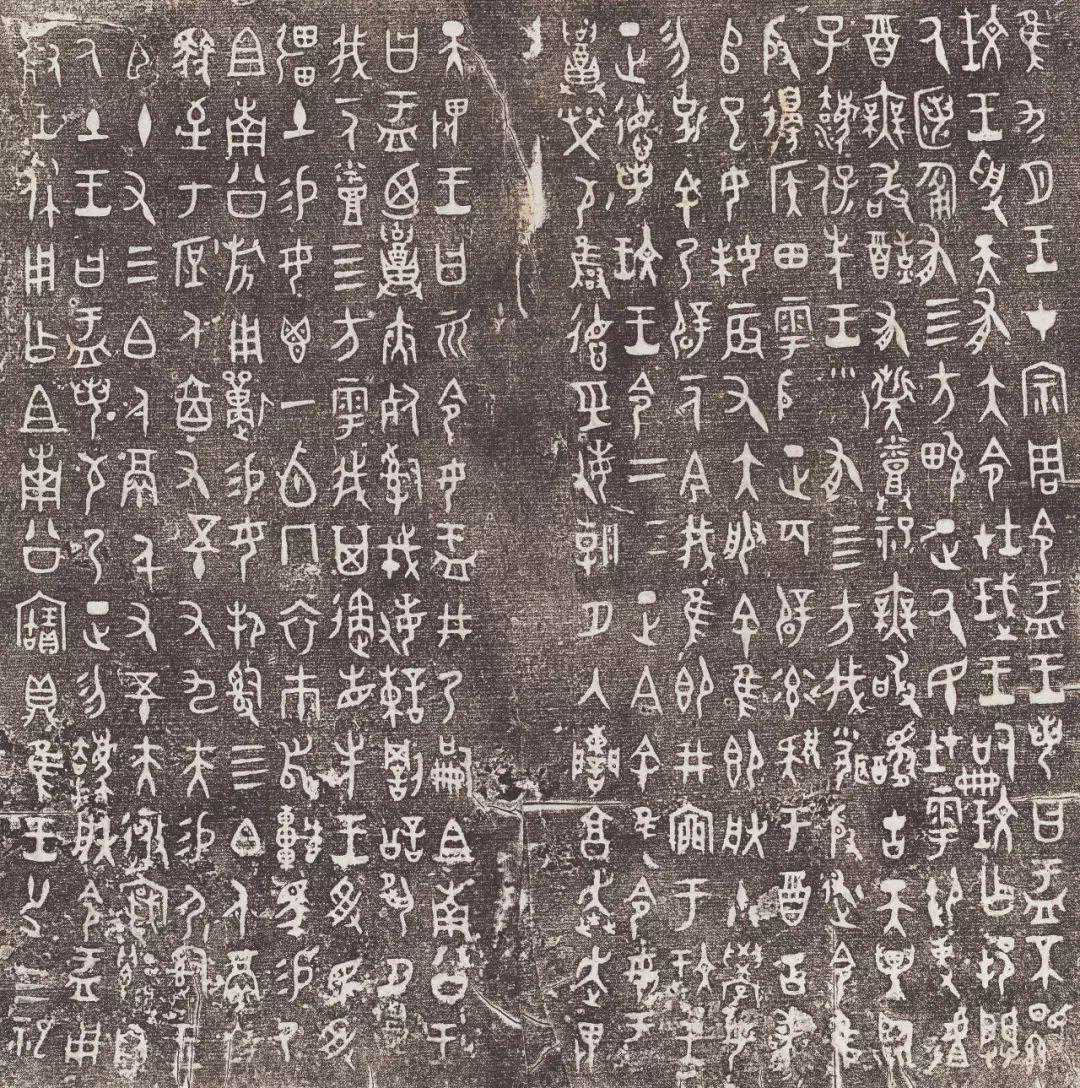 隹九月王才宗周令盂王若曰盂不顯
玟王受天有大令在珷王嗣玟乍邦闢
氒匿匍有四方畯正氒民在雩御事𠭯
酉無敢酖有髭烝祀無敢𨢩古天異臨
子灋保先王有四方我聞殷述令隹
殷邊侯田雩殷正百辟率肄于酉古喪
𠂤巳女妹辰又大服余隹即朕小學女
勿克余乃辟一人今我隹即井廩于玟王
正德若玟王令二三正今余隹令女盂
召榮敬雍德巠敏朝夕入讕享奔走畏
天畏王曰而令女盂井乃嗣且南公王
曰盂廼召夾死𤔲戎敏諫罰訟夙夕召
我一人烝四方雩我其遹省先王受民受
疆土易女鬯一卣冂衣巿舄車馬易乃
且南公旂用遷易女邦𤔲四白人鬲自
馭至于庶人六百又五十又九夫易尸𤔲
王臣十又三白人鬲千又五十夫
自氒土王曰盂若敬乃正勿灋朕令盂
用對王休用乍且南公寶鼎隹王廿又三祀